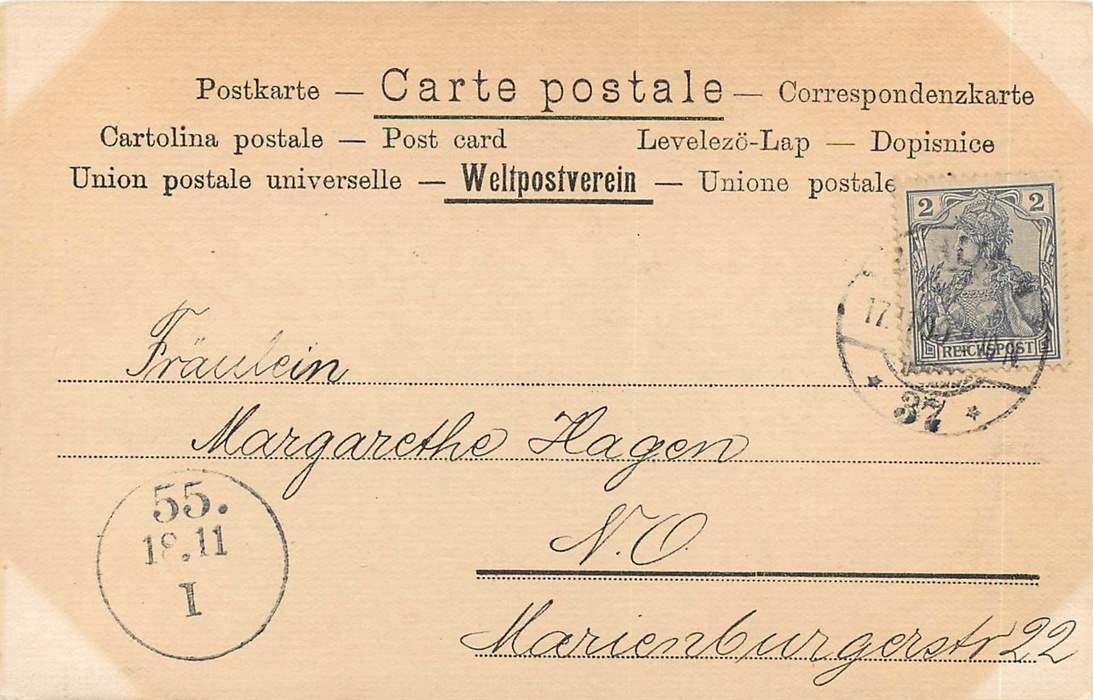 Postkarte — Carte postale — Correspondenzkarte
Cartolina postale — Post card Levelezö-Lap — Dopisnice
Union postale universelle — Weltpostverein — Unione postale
2 2
REICHSPOST
37
Fräulein
Margarethe Hagen
N.O.
Marienburgerstr 22
55.
18.11
I